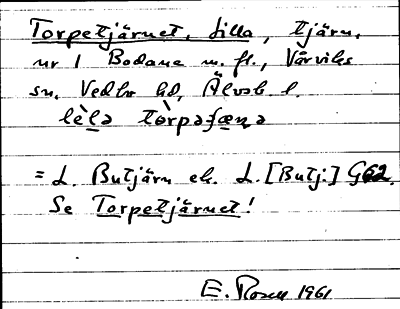 Torpetjärnet, Lilla, tjärn,
nr 1 Bodane m. fl., Värviks
sn, Vedbo hd, Älvsb. l.
lèlə tòrpəʃænə
= L. Butjärn ek. L. [Butj.] G62.
Se Torpetjärnet!
E. Rosell 1961